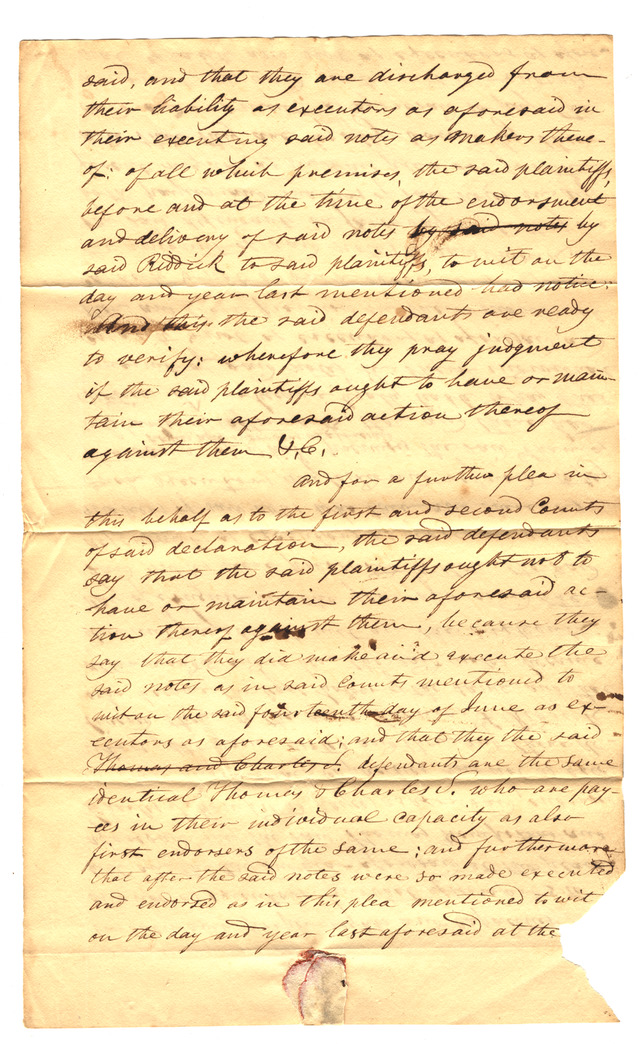 said, and that they are discharged from
their liability as executors as aforesaid in
their executing said notes as makers there-
of: of all which premises, the said plaintiffs,
before and at the time of the endorsment
and delivery of said notes by said notes by
said Riddick to said plaintiffs, to wit on the
day and year last mentioned had notice:
And this the said defendants are ready
to verify: wherefore they pray judgment
if the said plaintiffs ought to have or main-
tain their aforesaid action thereof
against them &.C.
And for a further plea in
this behalf as to the first and second Counts
of said declaration, the said defendants
say that the said plaintiffs ought not to
have or maintain their aforesaid ac-
tion thereof against them, because they
say that they did make and execute the
said notes as in said Counts mentioned to
wit on the said fourteenth day of June as ex-
ecutors as aforesaid; and that they the said
Thomas and Charles S. defendants are the same
identical Thomas & Charles S. who are pay-
ees in their individual capacity as also
first endorsers of the same; and furthermore
that after the said notes were so made executed
and endorsed as in this plea mentioned to wit
on the day and year last aforesaid at the